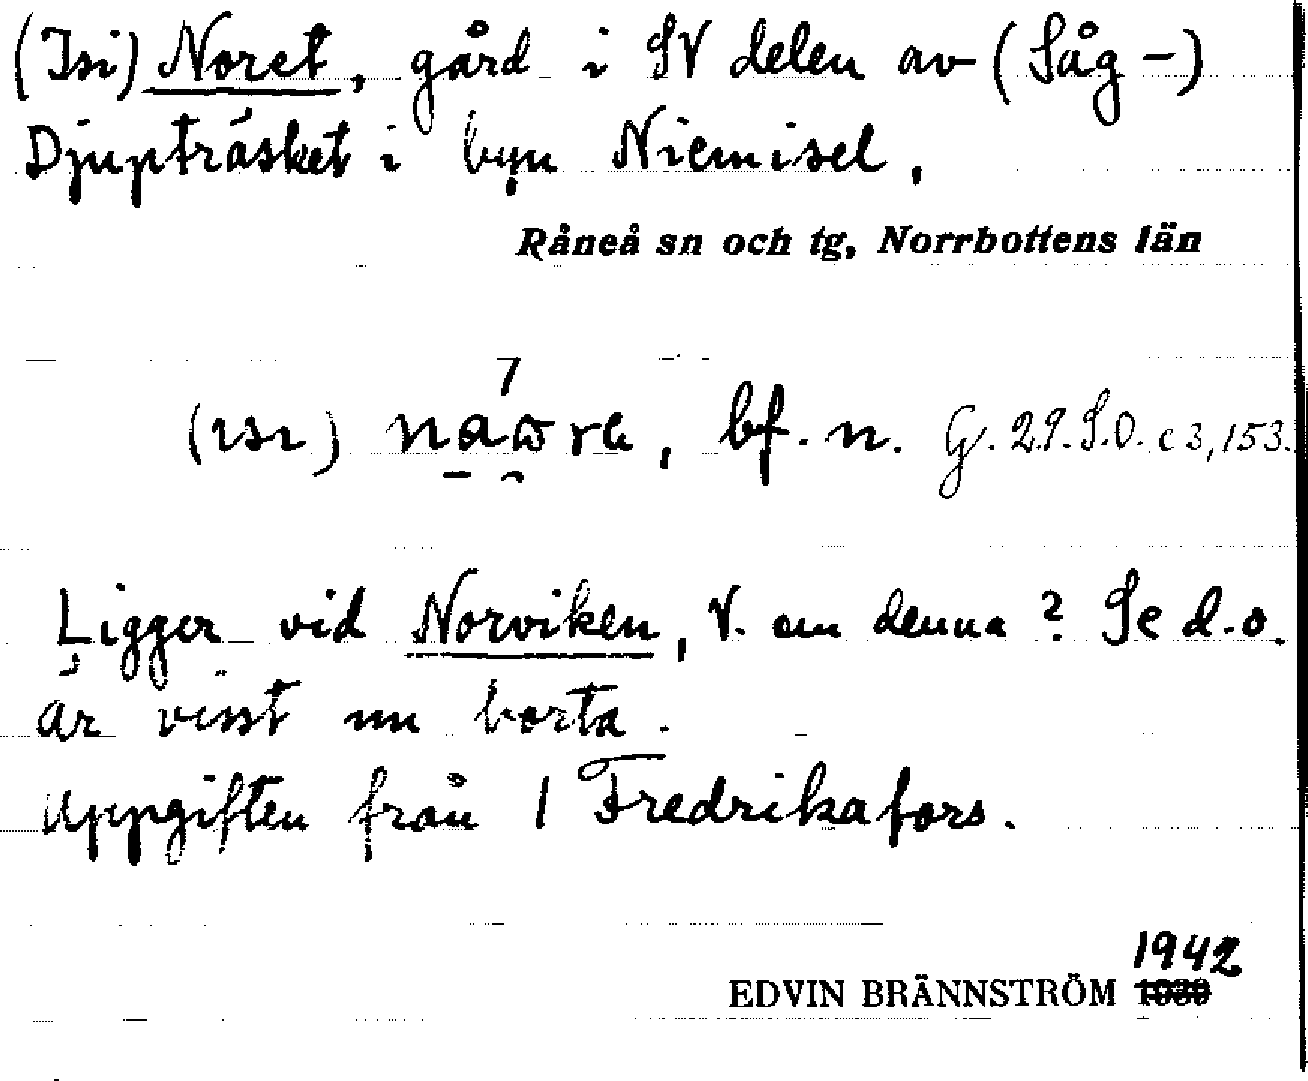 (Isi) Noret, gård i SV delen av (Såg-)
Djupträsket i byn Niemisel,
Råneå sn och tg, Norrbottens län
bf. n. G. 29. S.O. c 3, 153.
Ligger vid Norviken, V. om denna? Se d.o.
är visst nu borta.
Uppgiften från 1 Fredrikafors.
1942
EDVIN BRÄNNSTRÖM 1930